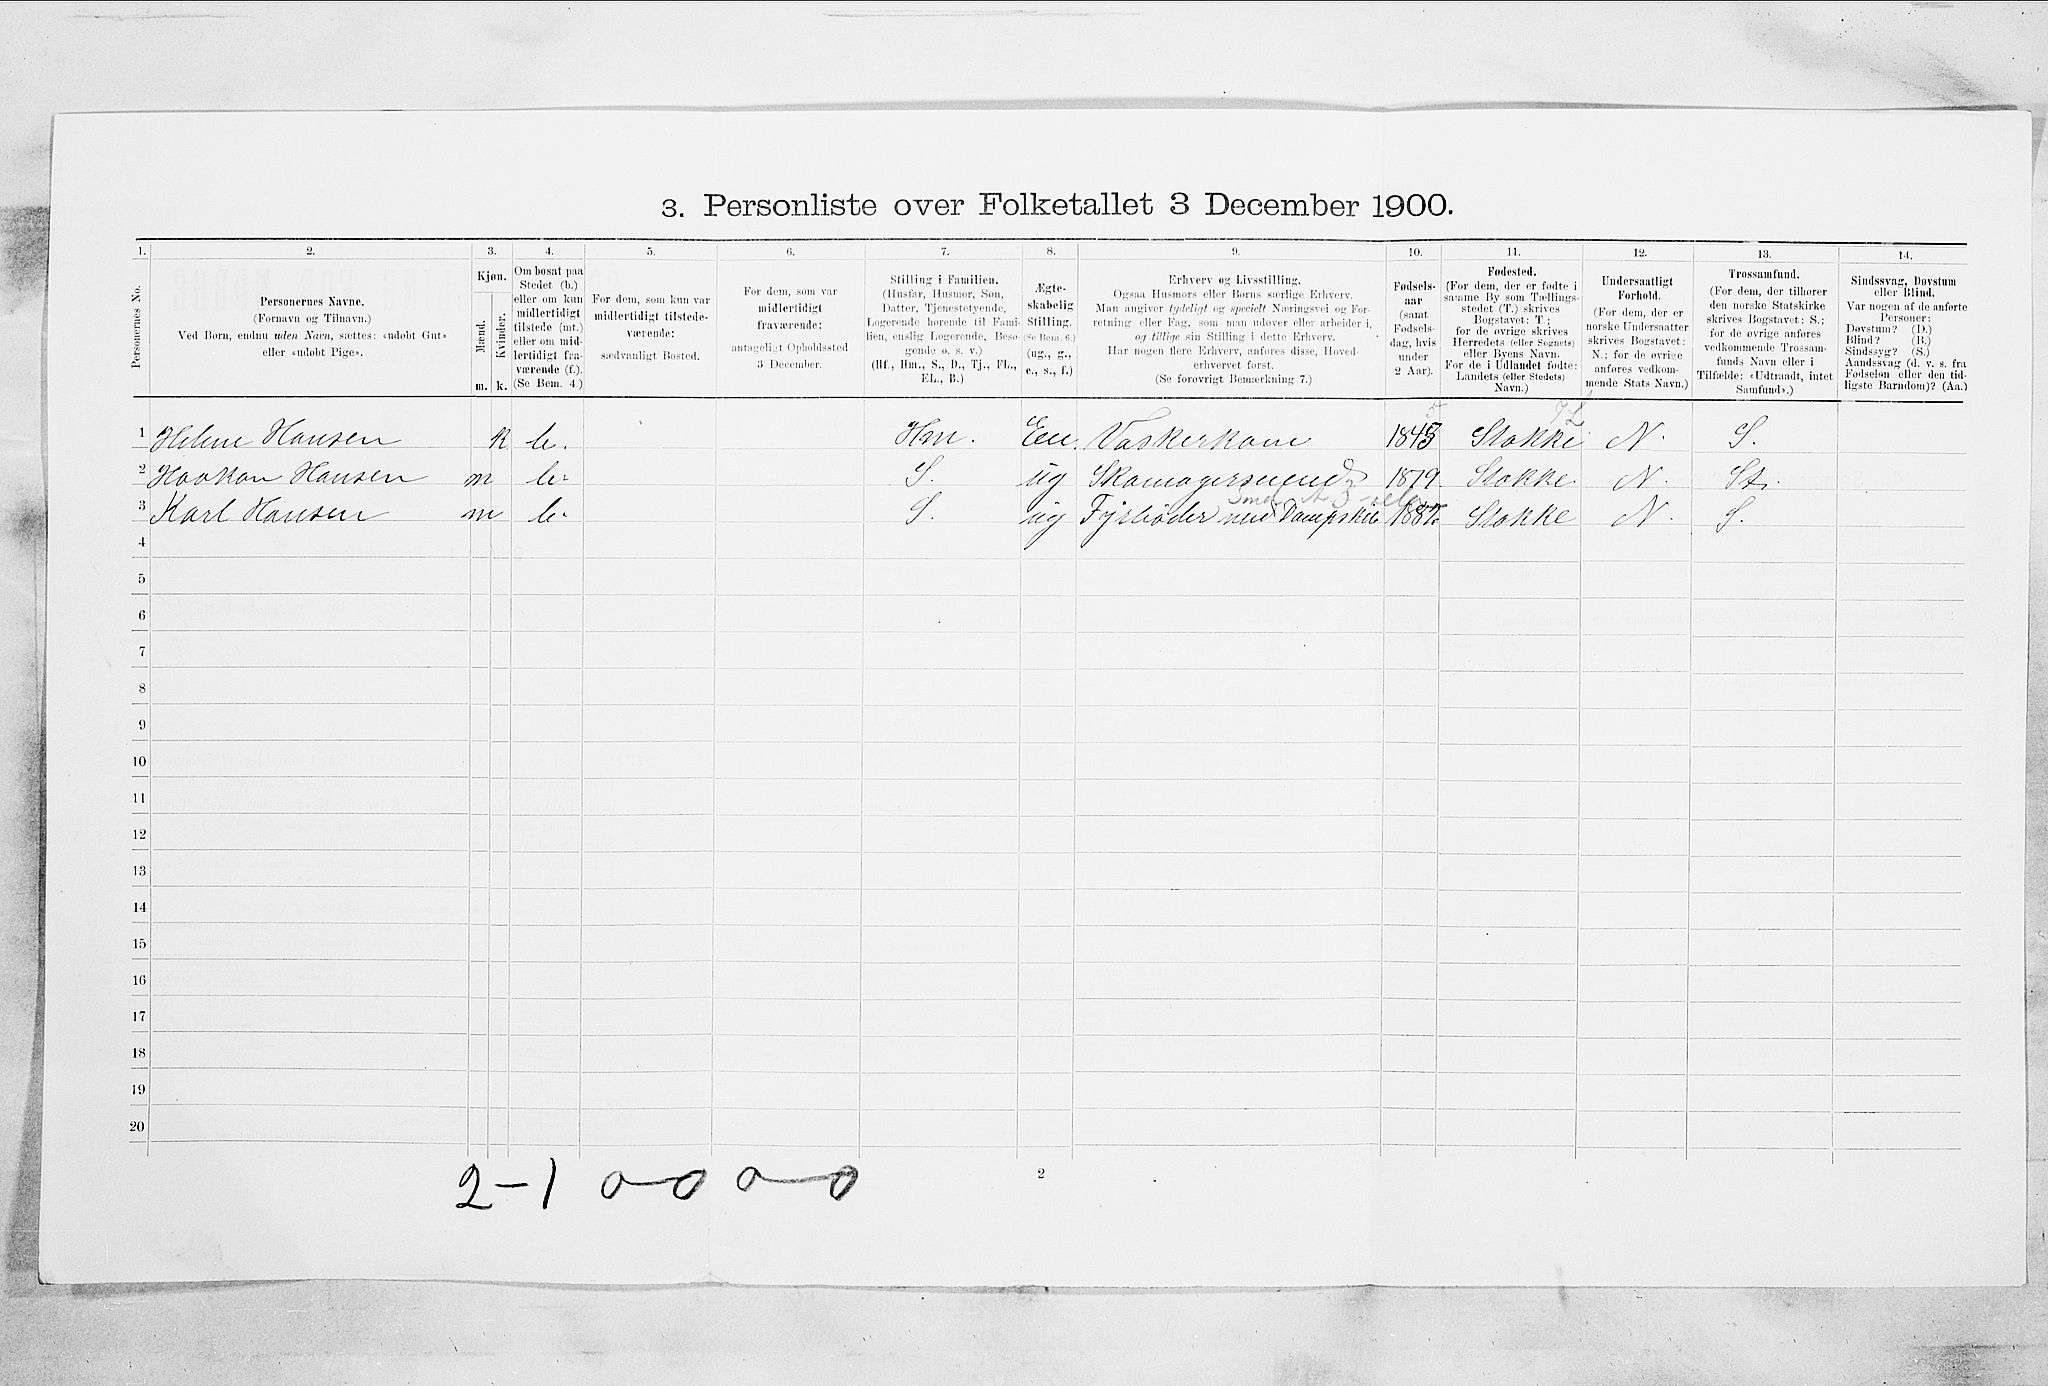 3. Personliste over Folketallet 3 December 1900.
1. 2. 3. 4. 5. 6. 7. 8. 9. 10. 11. 12. 13. 14.
Personernes No.
Personernes Navne.
(Fornavn og Tilnavn.)
Ved Børn, endnu uden Navn, sættes: «udøbt Gut»
eller «udøbt Pige».
Kjøn.
Mænd.
Kvinder.
m. k.
Om bosat paa
Stedet (b.)
eller om kun
midlertidigt
tilstede (mt.)
eller om mid-
lertidigt fra-
værende (f.).
(Se Bem. 4.)
For dem, som kun var
midlertidigt tilstede-
værende:
sædvanligt Bosted.
For dem, som var
midlertidigt
fraværende:
antageligt Opholdssted
3 December.
Stilling i Familien.
(Husfar, Husmor, Søn,
Datter, Tjenestetyende,
Logerende hørende til Fami-
lien, enslig Logerende, Besø-
gende o. s. v.)
(Hf., Hm., S., D., Tj., FL.,
EL., B.)
Ægte-
skabelig
Stilling.
(Se Bem. 6.)
(ug., g.,
e., s., f.)
Erhverv og Livsstilling.
Ogsaa Husmors eller Børns særlige Erhverv.
Man angiver tydeligt og specielt Næringsvei og For-
retning eller Fag, som man udøver eller arbeider i,
og tillige sin Stilling i dette Erhverv.
Har nogen flere Erhverv, anføres disse, Hoved-
erhvervet først.
(Se forøvrigt Bemærkning 7.)
Fødsels-
aar
(samt
Fødsels-
dag, hvis
under
2 Aar).
Fødested.
(For dem, der er fødte i
samme By som Tællings-
stedet (T.) skrives
Bogstavet: T;
for de øvrige skrives
Herredets (eller Sognets)
eller Byens Navn.
For de i Udlandet fødte:
Landets (eller Stedets)
Navn.)
Undersaatligt
Forhold.
(For dem, der er
norske Undersaatter
skrives Bogstavet:
N.; for de øvrige
anføres vedkom-
mende Stats Navn.)
Trossamfund.
(For dem, der tilhører
den norske Statskirke
skrives Bogstavet: S.;
for de øvrige anføres
vedkommende Trossam-
funds Navn eller i
Tilfælde: «Udtraadt, intet
Samfund».)
Sindssvag, Døvstum
eller Blind.
Var nogen af de anførte
Personer:
Døvstum? (D.)
Blind? (B.)
Sindssyg? (S.)
Aandssvag (d. v. s. fra
Fødselen eller den tid-
ligste Barndom)? (Aa.)
1 Helene Hansen k b. Hm. En. Vaskerkone 1845 Stokke N. S.
2 Haakon Hansen m b. S. ug Skomagersvend 1879 Stokke. N. St.
3 Karl Hansen m b. S. ug Fyrbøder med Dampskib Stokke N. S.
4
5
6
7
8
9
10
11
12
13
14
15
16
17
18
19
20
2-1 0-0 0-0
2